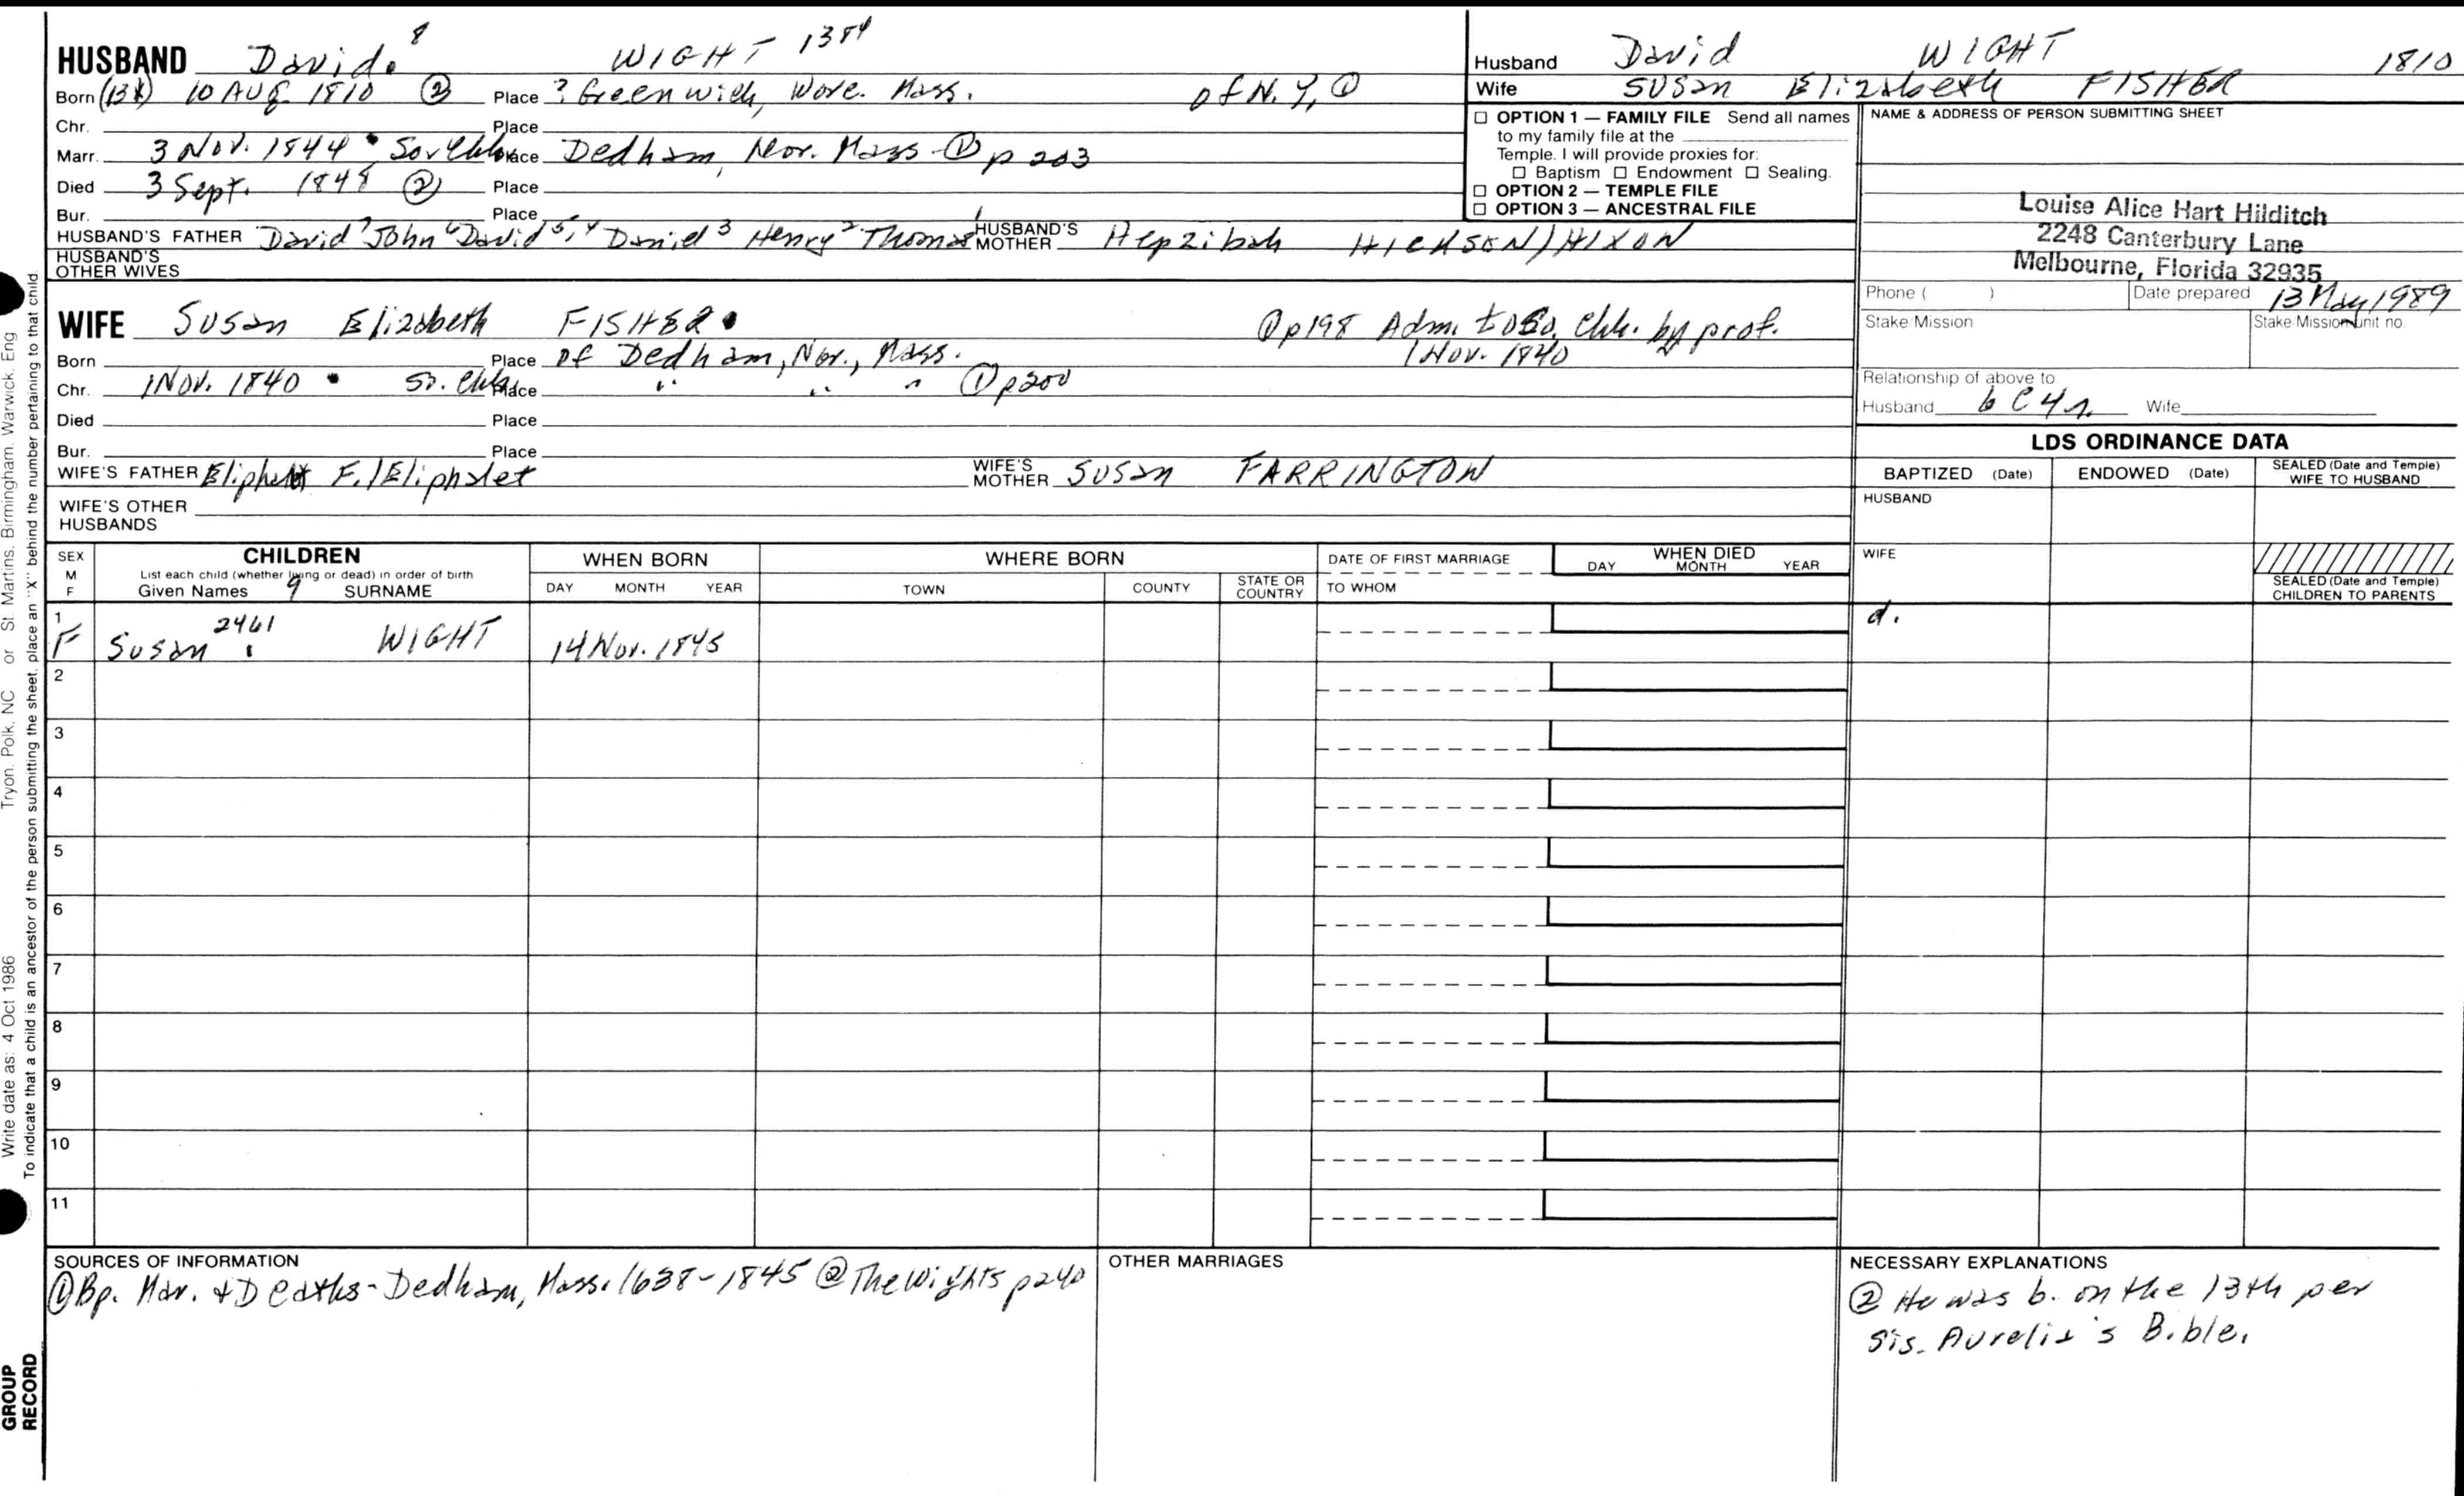 HUSBAND David 8 WIGHT 1384
Born (13) 10 AUG 1810 ② Place ? Greenwich, Worc. Mass. of N.Y, ①
Chr. Place
Marr. 3 Nov. 1844 Place Dedham, Nor. Mass ① p 203
Died 3 Sept. 1848 ② Place
Bur. Place
HUSBAND'S FATHER David 7 John 6 David 5,4 Daniel 3 Henry 2 Thomas 1 HUSBAND'S MOTHER Hepzibah HICKSON/HIXON
HUSBAND'S OTHER WIVES
WIFE Susan Elizabeth FISHER ① p198 Adm. to So. Chh. by prof.
1 Nov. 1840
Born Place of Dedham, Nor., Mass.
Chr. 1 Nov. 1840 So. Chh. Place " " " ① p200
Died Place
Bur. Place
WIFE'S FATHER F./Eliphalet WIFE'S MOTHER Susan FARRINGTON
WIFE'S OTHER HUSBANDS
Husband David WIGHT 1810
Wife SUSan Elizabeth FISHER
☐ OPTION 1 — FAMILY FILE Send all names
to my family file at the
Temple. I will provide proxies for:
☐ Baptism ☐ Endowment ☐ Sealing.
☐ OPTION 2 — TEMPLE FILE
☐ OPTION 3 — ANCESTRAL FILE
NAME & ADDRESS OF PERSON SUBMITTING SHEET
Louise Alice Hart Hilditch
2248 Canterbury Lane
Melbourne, Florida 32935
Phone ( ) Date prepared 13 May 1989
Stake/Mission Stake/Mission unit no.
Relationship of above to
Husband 6C4r. Wife
LDS ORDINANCE DATA
BAPTIZED (Date) ENDOWED (Date) SEALED (Date and Temple) WIFE TO HUSBAND
HUSBAND
WIFE
SEALED (Date and Temple)
CHILDREN TO PARENTS
SEX M F
CHILDREN
List each child (whether living or dead) in order of birth
Given Names 9 SURNAME
WHEN BORN
DAY MONTH YEAR
WHERE BORN
TOWN COUNTY STATE OR COUNTRY
DATE OF FIRST MARRIAGE
TO WHOM
WHEN DIED
DAY MONTH YEAR
1 F Susan 2461 WIGHT 14 Nov. 1845 d.
2
3
4
5
6
7
8
9
10
11
SOURCES OF INFORMATION
① Bp. Mar. & Deaths - Dedham, Mass. 1638-1845 ② The Wights p240
OTHER MARRIAGES
NECESSARY EXPLANATIONS
② He was b. on the 13th per
sis. Aurelia's Bible.
Write date as: 4 Oct 1986 Tryon, Polk, NC or St. Martins, Birmingham, Warwick, Eng
To indicate that a child is an ancestor of the person submitting the sheet, place an "X" behind the number pertaining to that child.
GROUP
RECORD